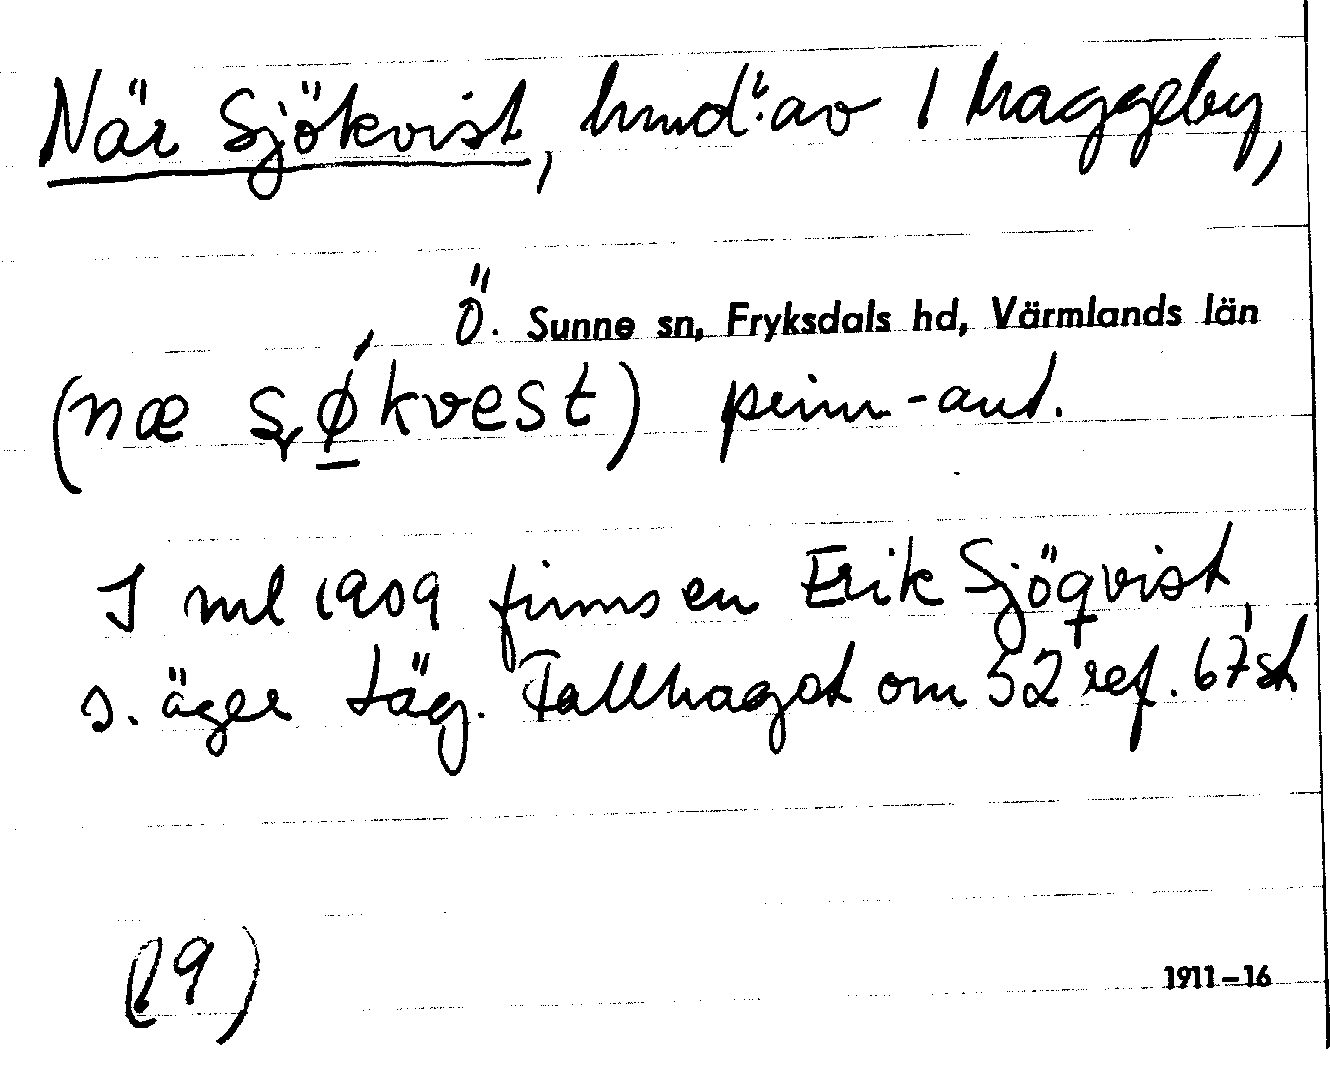 När Sjökvist, hmd: av 1 Maggeby,
Ö. Sunne sn, Fryksdals hd, Värmlands län
(næ søkvest) pers.-anv.
I ml 1909 finns en Erik Sjöqvist,
s. äger läg. Tallhagst om 52 ref. 67 st
(19)
1911–16